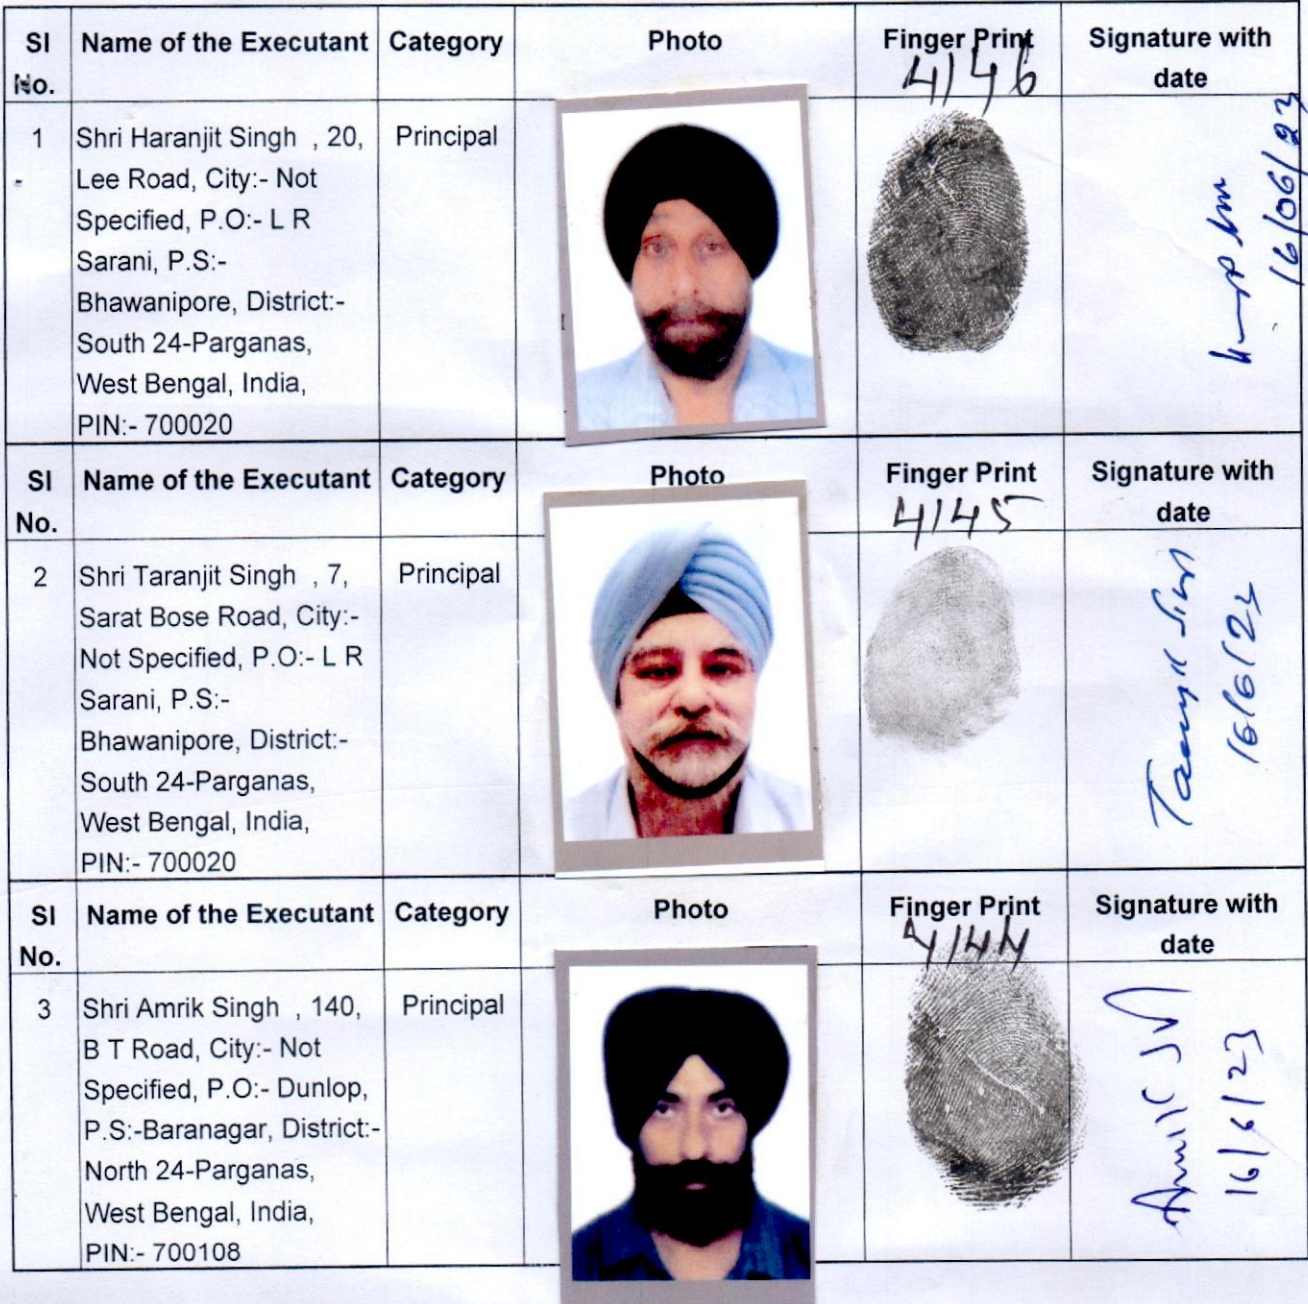 Sl No. Name of the Executant Category Photo Finger Print Signature with date
4146
1 Shri Haranjit Singh , 20, Principal
Lee Road, City:- Not
Specified, P.O:- L R
Sarani, P.S:-
Bhawanipore, District:-
South 24-Parganas,
West Bengal, India,
PIN:- 700020
16/06/23
Sl No. Name of the Executant Category Photo Finger Print Signature with date
4145
2 Shri Taranjit Singh , 7, Principal
Sarat Bose Road, City:-
Not Specified, P.O:- L R
Sarani, P.S:-
Bhawanipore, District:-
South 24-Parganas,
West Bengal, India,
PIN:- 700020
16/6/23
Sl No. Name of the Executant Category Photo Finger Print Signature with date
4144
3 Shri Amrik Singh , 140, Principal
B T Road, City:- Not
Specified, P.O:- Dunlop,
P.S:-Baranagar, District:-
North 24-Parganas,
West Bengal, India,
PIN:- 700108
16/6/23